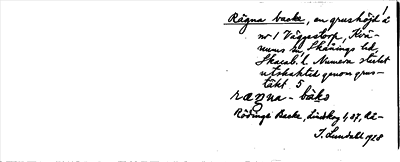 Rägna backe, en grushöjd å
nr 1 Väggestorp, Kvä-
nums sn, Skånings hd,
Skarab. l. Numera slutet
utskaktad genom grus-
täkt
rægna-bakə
Rödinge Backe, Lindskog 4, 07,
J. Lundahl 1928